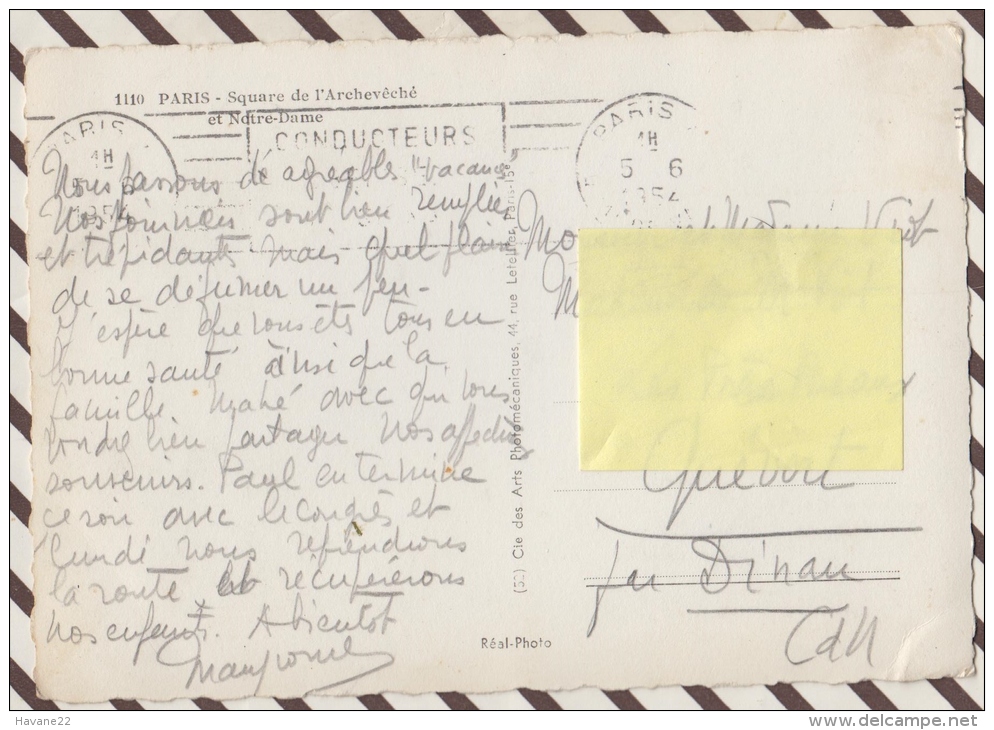 1110 PARIS - Square de l'Archevêché
et Notre-Dame
CONDUCTEURS
PARIS
4H
5 6
1954
PARIS
4H
5 6
1954
Nous passons d'agréables "vacances"
Nos journées sont bien remplies
et trépidantes mais quel plaisir
de se défumer un peu-
J'espère que vous êts tous en
bonne santé ainsi que la
famille Mahé avec qui vous
voudrez bien partager nos affectueux
souvenirs. Paul en termine
ce soir avec le congrès et
lundi nous reprendrons
la route et récupèrerons
nos enfants. A bientot
(52) Cie des Arts Photomécaniques, 44, rue Letellier, Paris-15e
Réal-Photo
Quévert
par Dinan
CdN
Havane22
www.delcampe.net